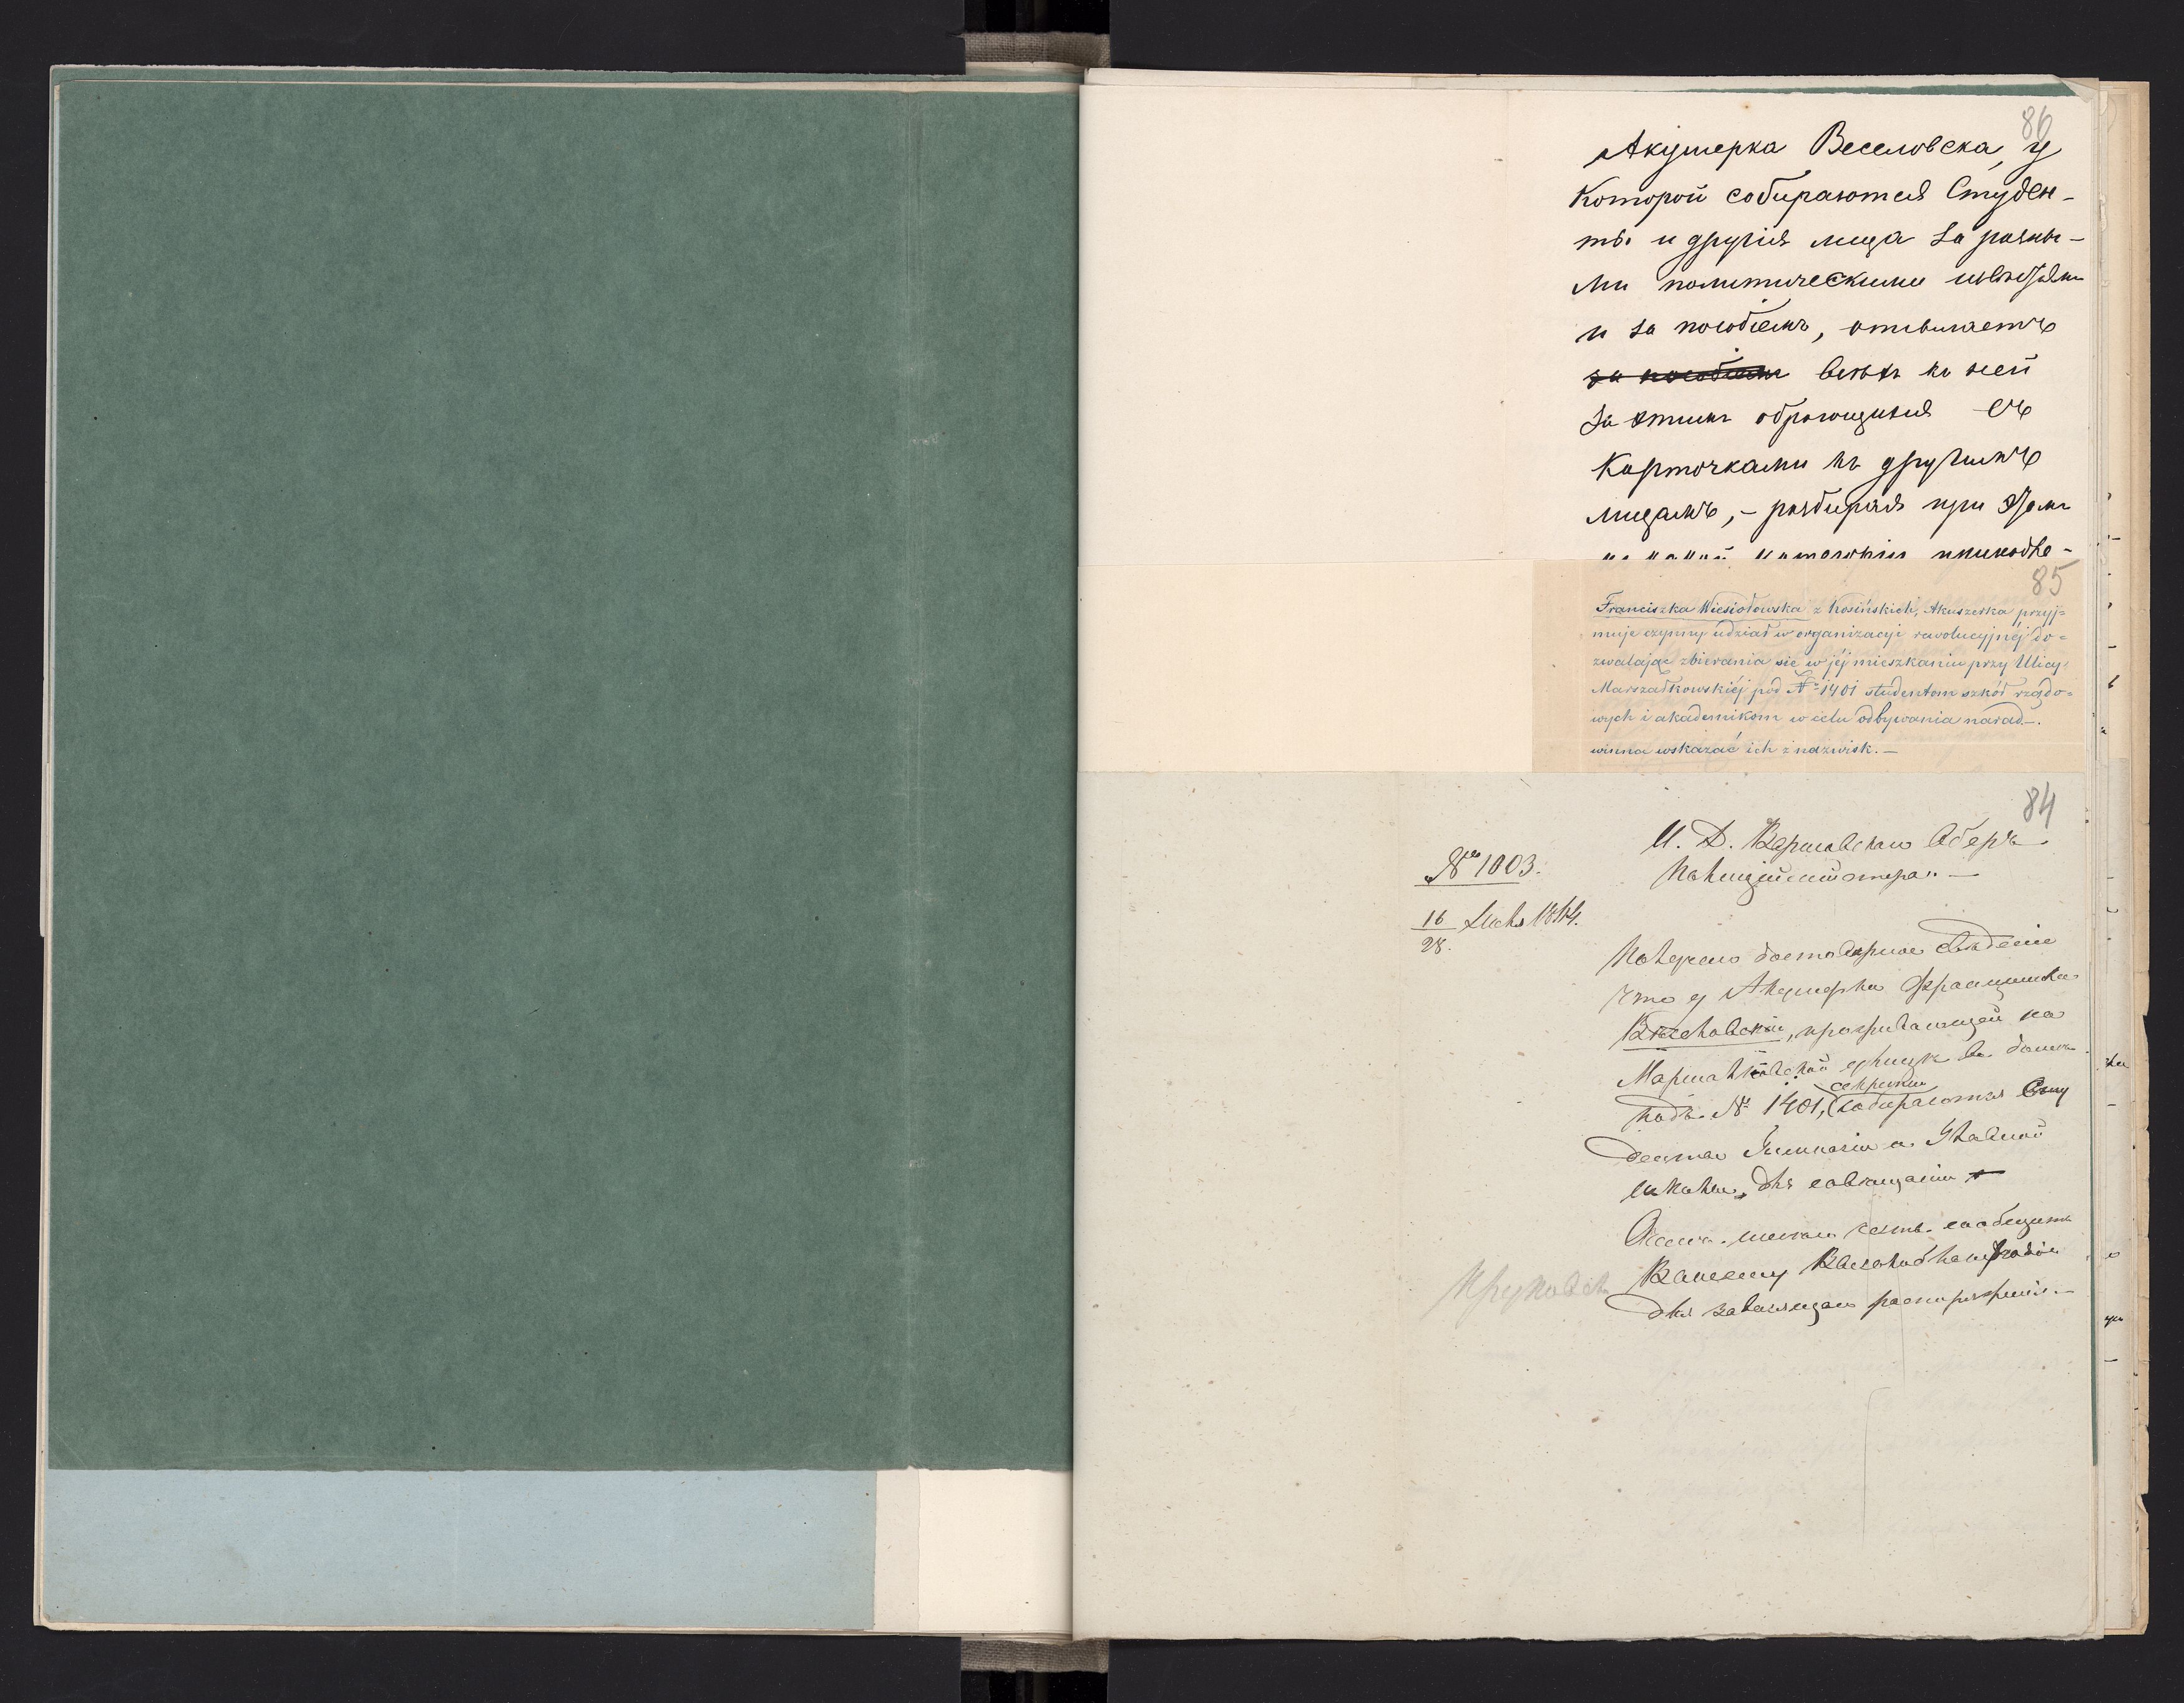 86
Акушерка Веселовска, у
которой собираются Студен-
ты и другія лица за разны-
ми политическими извѣстіями
и за пособіемъ, отсылаетъ
за пособіемъ всѣхъ къ ней
за этимъ обращающихся съ
карточками къ другимъ
лицамъ, – разбирая при этомъ
85
Franciszka Wiesiołowska z Kosińskich, Akuszerka przyj=
muje czynny udział w organizacyi rewolucyjnéj do=
zwalając zbierania się w jéj mieszkaniu przy Ulicy
Marszałkowskiéj pod № 1401 studentom szkół rządo=
wych i akademikom w celu odbywania narad –.
winna wskazać ich z nazwisk. –
84
И. Д. Варшавскаго Оберъ
Полиціймейстера. —
№ 1003.
16/28 1864.
Получено достовѣрное свѣдѣніе
что у Акушерки Францишки
Веселовской, проживающей на
Маршалковской улицѣ въ домѣ
подъ № 1401, секретно собираются Сту
денты Гимназіи и Главной
школы, для совѣщанія
имѣю честь сообщить
Вашему Высокоблагородію
для зависящаго распоряженія. —